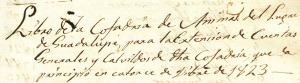 Libro de la Cofadria de Animal del Lugar
de Guadalupe, para la Estension de Cuentas
Generales y Calvildos de dha Cofadria que da
principio en catorce de Sibre de 1923